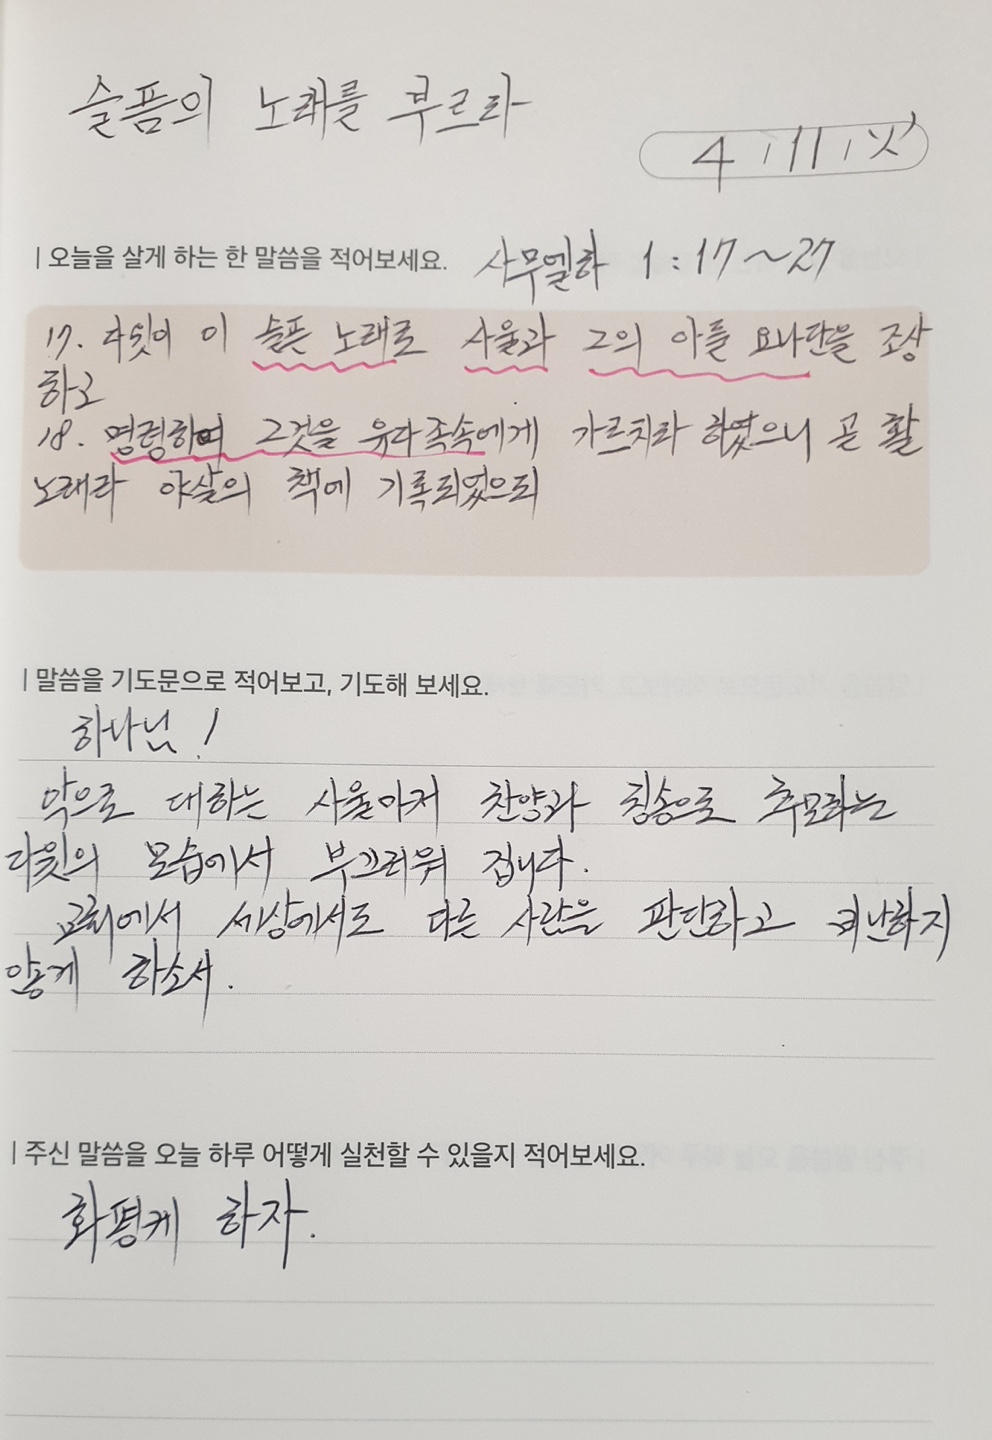 슬픔의 노래를 부르라
4, 11, 화
| 오늘을 살게 하는 한 말씀을 적어보세요. 사무엘하 1:17~27
17. 다윗이 이 슬픈 노래로 사울과 그의 아들 요나단을 조상
하고
18. 명령하여 그것을 유다족속에게 가르치라 하였으니 곧 활
노래라 야살의 책에 기록되었으되
| 말씀을 기도문으로 적어보고, 기도해 보세요.
하나님!
악으로 대하는 사울마저 찬양과 칭송으로 추모하는
다윗의 모습에서 부끄러워 집니다.
교회에서 세상에서도 다른 사람을 판단하고 비난하지
않게 하소서.
| 주신 말씀을 오늘 하루 어떻게 실천할 수 있을지 적어보세요.
화평케 하자.